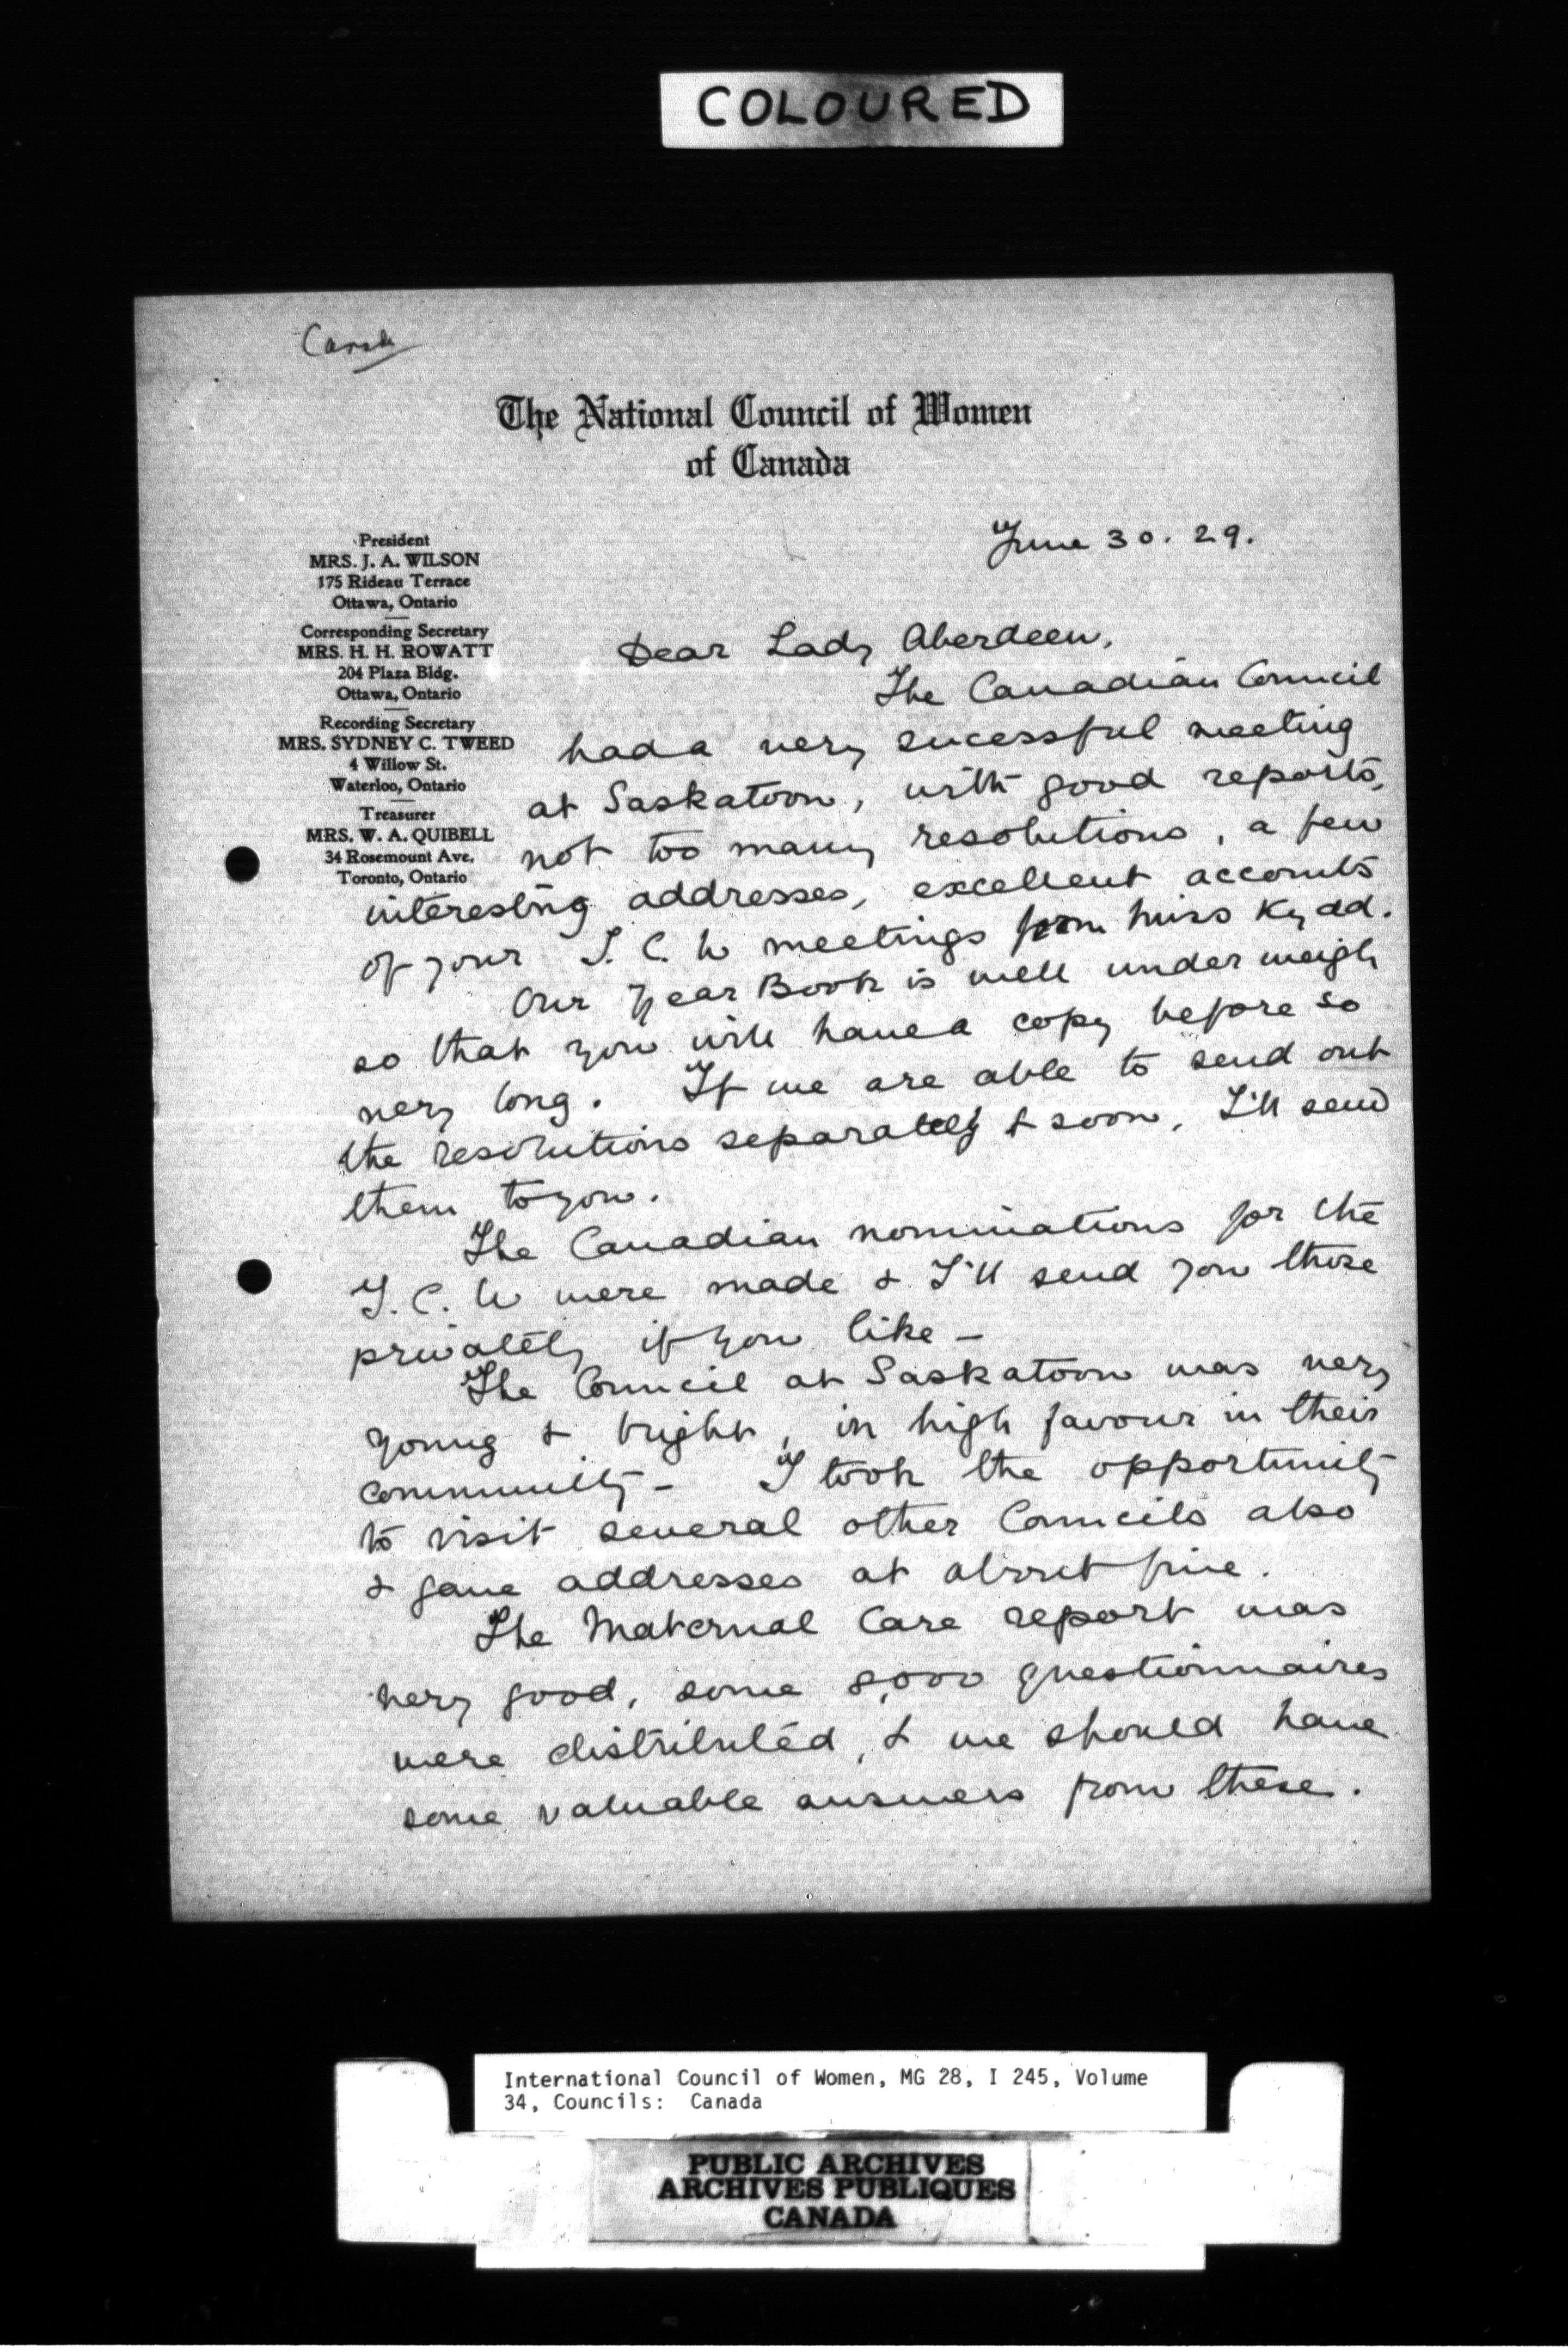 COLOURED
The National Council of Women
of Canada
June 30. 29.
President
MRS. J. A. WILSON
175 Rideau Terrace
Ottawa, Ontario
Corresponding Secretary
MRS. H. H. ROWATT
204 Plaza Bldg.
Ottawa, Ontario
Recording Secretary
MRS. SYDNEY C. TWEED
4 Willow St.
Waterloo, Ontario
Treasurer
MRS. W. A. QUIBELL
34 Rosemount Ave.
Toronto, Ontario
Dear Lady Aberdeen,
The Canadian Council
had a very sucessful meeting
at Saskatoon, with good reports,
not too many resolutions, a few
interesting addresses, excellent accounts
of your I. C. W meetings from Miss Kydd.
Our Year Book is well under weigh
so that you will have a copy before so
very long. If we are able to send out
the resolutions separately & soon, I'll send
them to you.
The Canadian nominations for the
I. C. W were made & I'll send you those
privately if you like –
The Council at Saskatoon was very
young & bright, in high favour in their
community – I took the opportunity
to visit several other Councils also
& gave addresses at about five.
The Maternal Care report was
very good, some 8,000 questionnaires
were distributed, & we should have
some valuable answers from these.
International Council of Women, MG 28, I 245, Volume
34, Councils: Canada
PUBLIC ARCHIVES
ARCHIVES PUBLIQUES
CANADA